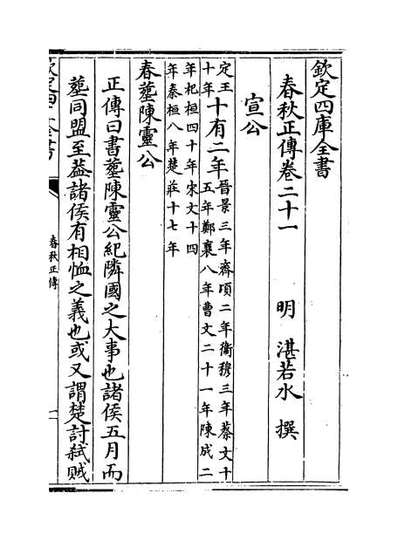 欽定四庫全書
春秋正傳卷二十一 明 湛若水 撰
宣公
定王十年十有二年晉景三年齊頃二年衞穆三年蔡文十五年鄭襄八年曹文二十一年陳成二
年杞桓四十年宋文十四年秦桓八年楚莊十七年
春葬陳靈公
正傳曰書葬陳靈公紀隣國之大事也諸侯五月而
葬同盟至葢諸侯有相恤之義也或又謂楚討弑賊
春秋正傳
一